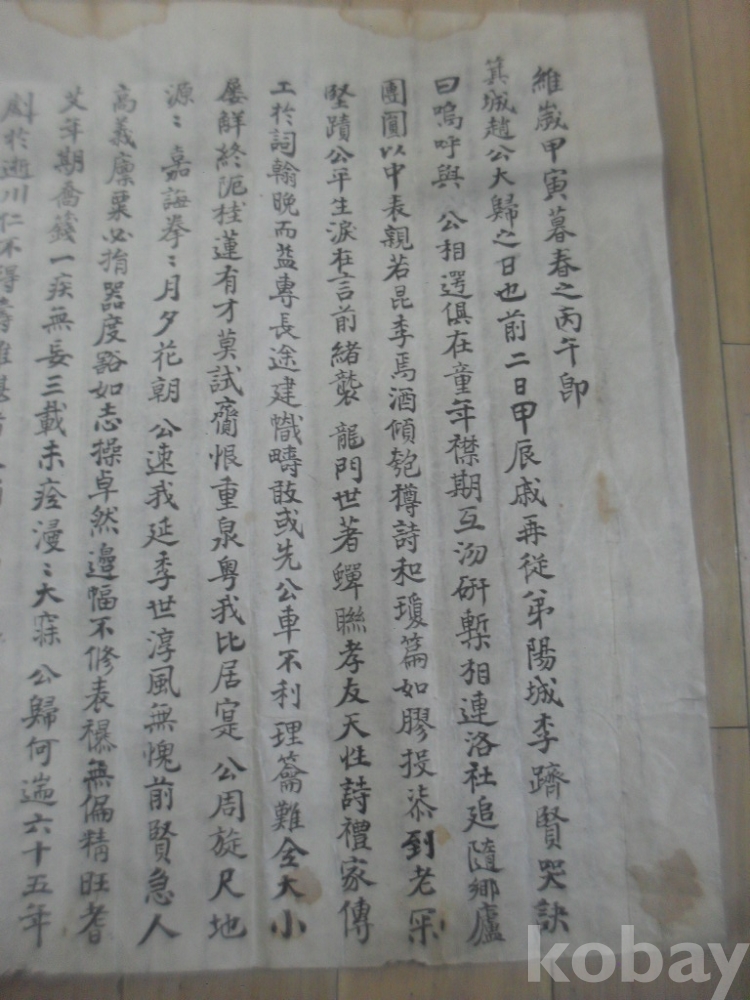 維歲甲寅暮春之丙午卽
箕城趙公大歸之日也前二日甲辰戚再從弟陽城李躋賢哭訣
曰嗚呼與 公相選俱在童年襟期互沕硏槧相連洛社追隨鄉廬
團圓以中表親若昆季焉酒傾匏樽詩和瓊篇如膠投漆到老采
堅蹟公平生淚在言前緒襲 龍門世著蟬聯孝友天性詩禮家傳
工於詞翰晩而益專長途建幟疇敢或先公車不利理籥難全大小
屢觧終阨桂蓮有才莫試齎恨重泉粤我比居寔 公周旋尺地
源〻嘉誨拳〻月夕花朝 公速我延季世淳風無愧前賢急人
高義廩粟必捐器度豁如志操卓然邊幅不修表襮無偏精旺耆
艾年期喬籛一疾無妄三載未痊漫〻大寐 公歸何遄六十五年
於逝川仁不得壽
kobay